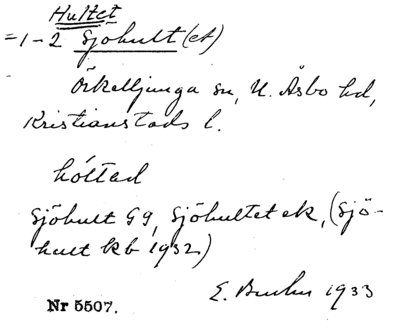 Hultet
= 1-2 Sjöhult (et)
Örkelljunga sn, N. Åsbo hd,
Kristianstads l.
hóltad
Sjöhult G9, Sjöhultet ek, (Sjö-
hult kb 1932)
E. 1933
Nr 5507.